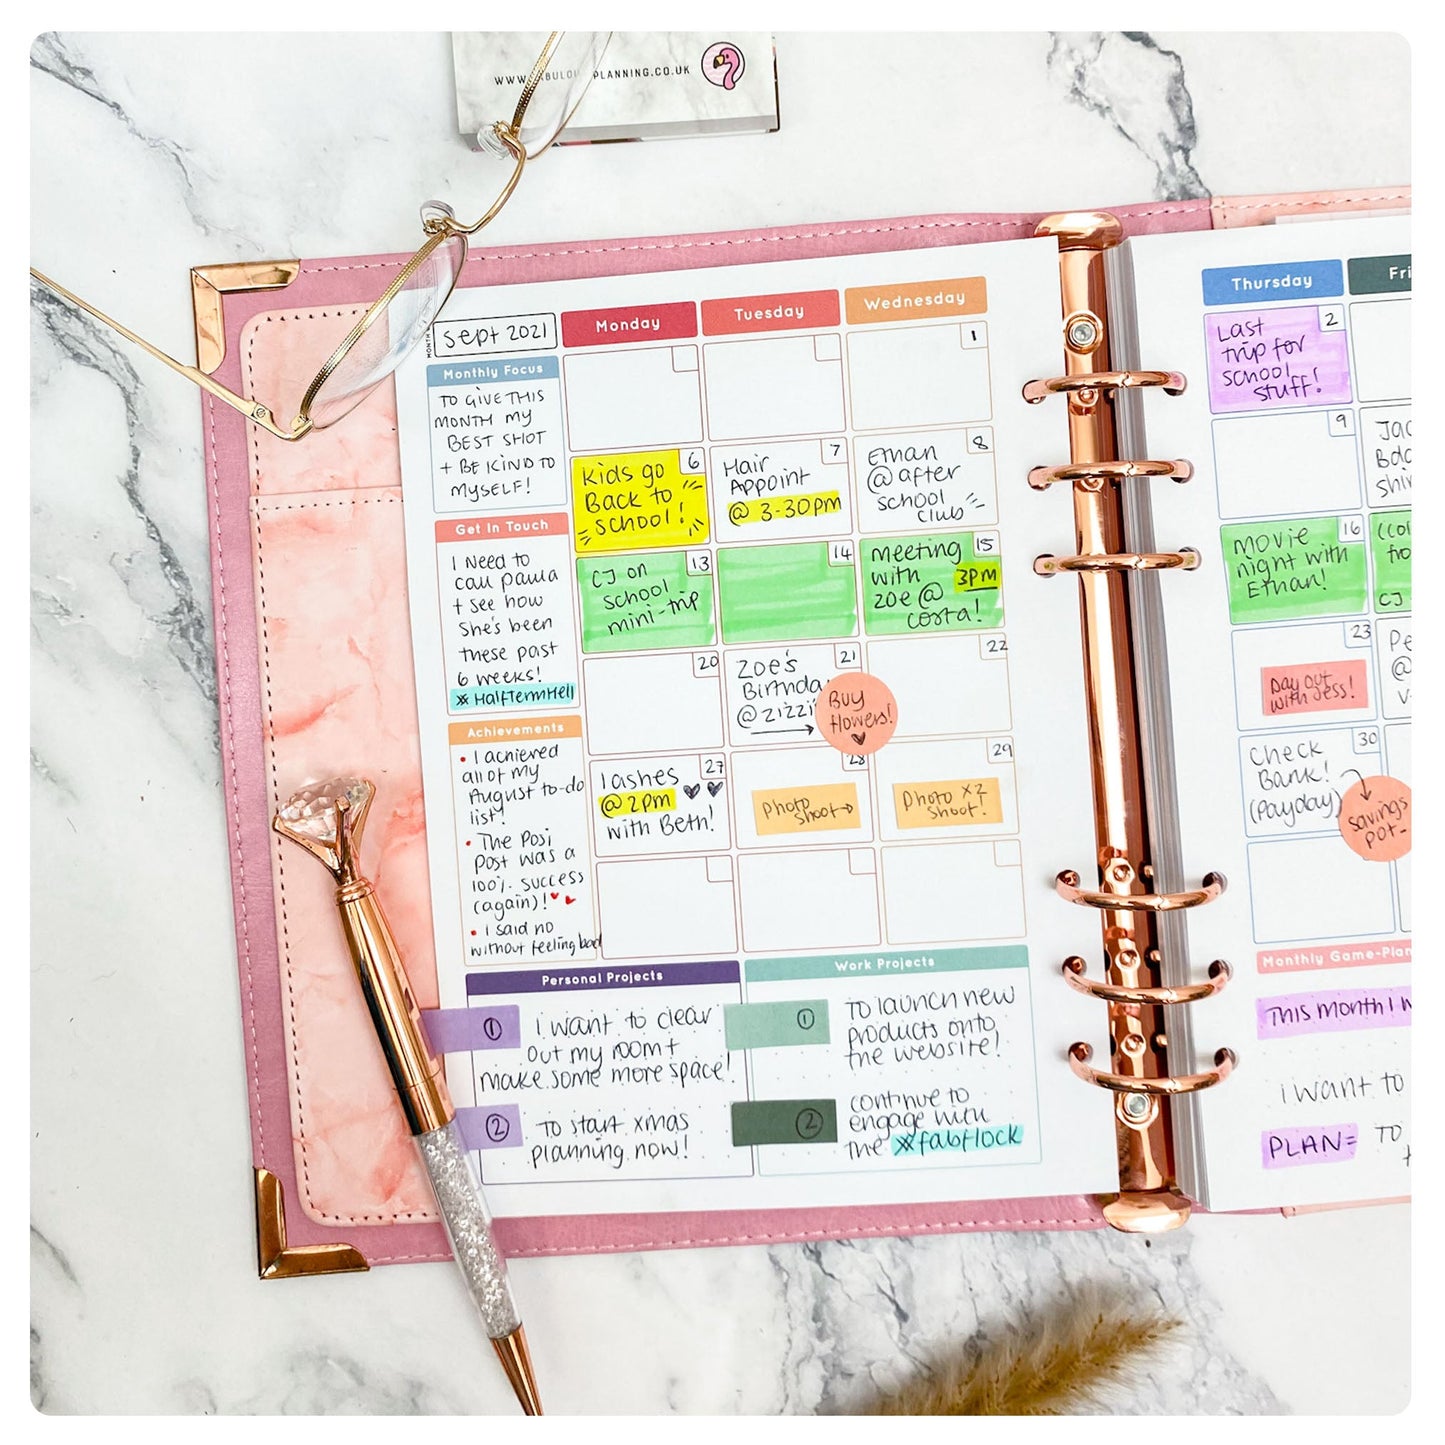 WWW.FABULOUSPLANNING.CO.UK
MONTH
Sept 2021
Monday
Tuesday
Wednesday
Thursday
Fri
Monthly Focus
TO GIVE THIS
MONTH MY
BEST SHOT
+ BE KIND TO
MYSELF!
Get In Touch
I Need to
call paula
+ see how
She's been
these past
6 weeks!
#HalfTermHell
Achievements
• I achieved
all of my
August to-do
list!
• The Posi
Post was a
100% success
(again)! ♥ ♥
• I said no
without feeling bad
1
2
Last
trip for
school
stuff!
6
Kids go
Back to
school!
7
Hair
Appoint
@ 3-30pm
8
Ethan
@ after
school
club
9
13
CJ on
school
mini-trip
14
15
meeting
with 3PM
zoe @
costa!
16
movie
night with
Ethan!
CJ
20
21
Zoe's
Birthda
@ zizzi
→
Buy
flowers!
♥
22
23
Day out
with Jess!
Pe
@
27
lashes
@ 2pm ♥♥
with Beth!
28
Photo
shoot→
29
Photo x2
shoot!
30
Check
Bank!
(Payday)
savings
pot-
Personal Projects
1
I want to clear
out my room +
make some more space!
2
To start xmas
planning now!
Work Projects
1
To launch new
products onto
the website!
2
continue to
engage with
the #fabflock
Monthly Game-Plan
This month I w
I want to
PLAN= TO